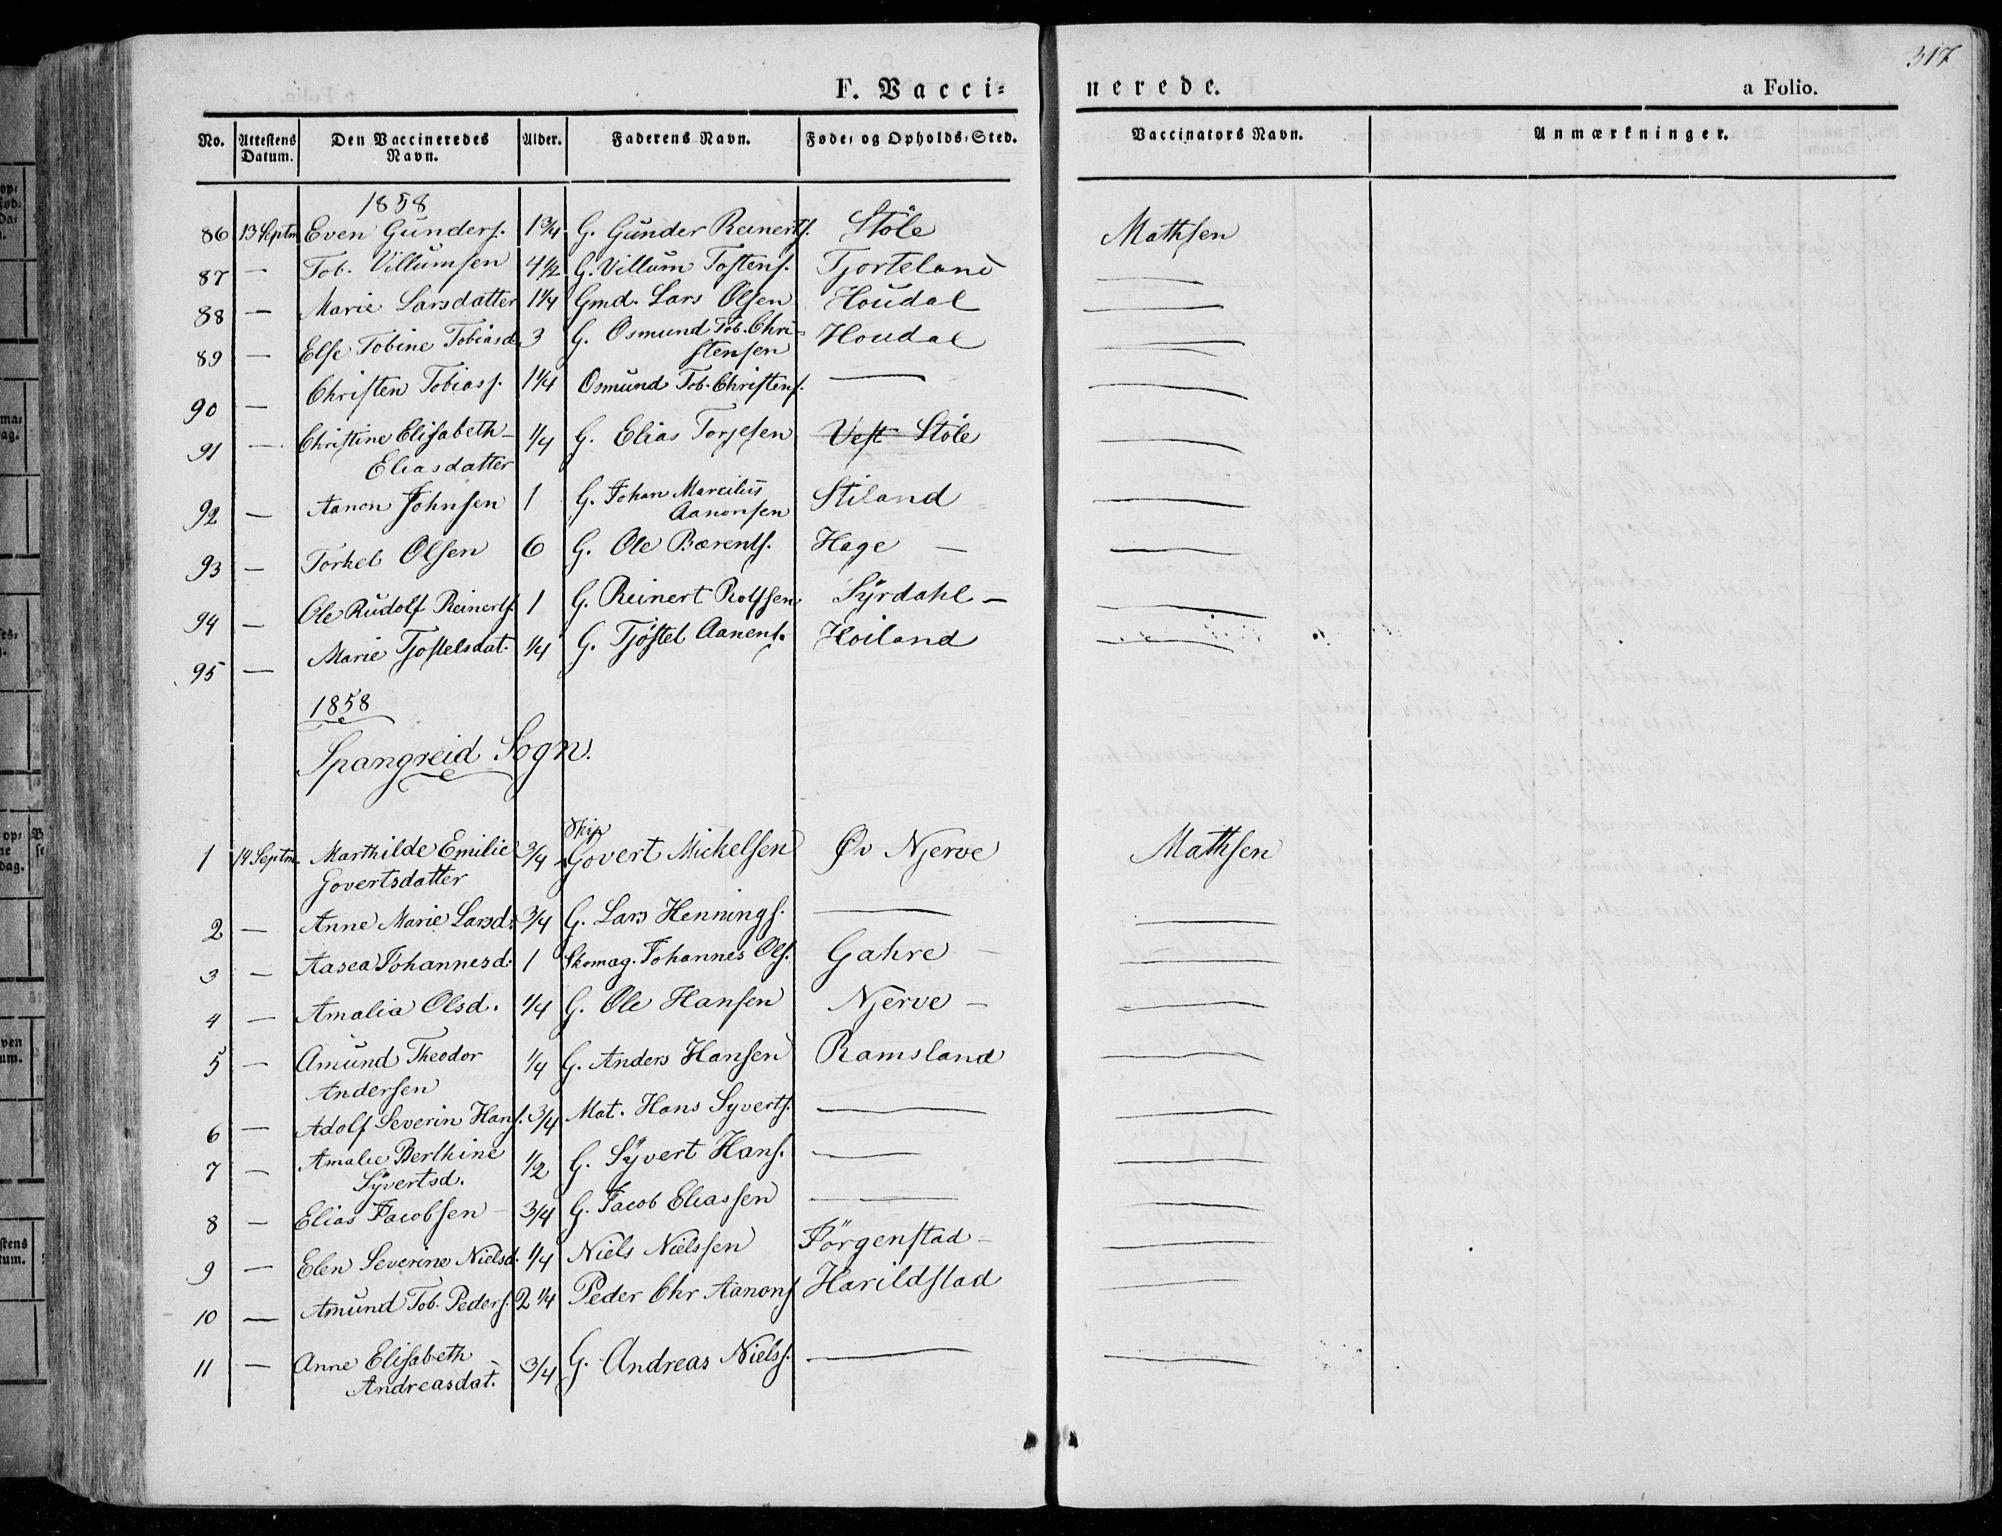 317
F. Vacci=
nerede.
a Folio.
No. Attestens Datum. Den Vaccineredes Navn. Alder. Faderens Navn. Føde- og Opholds-Sted. Vaccinators Navn. Anmærkninger.
1858
86 13 Septm Even Gunders. 1 3/4 G. Gunder Reinerts. Støle Mathsen
87 — Tob. Villumsen 4 1/2 G. Villum Tostens. Tjorteland —
88 — Marie Larsdatter 1 1/4 Gmd. Lars Olsen Houdal —
89 — Else Tobine Tobiasd. 3 G. Osmund Tob. Chri= Houdal —
stensen
90 — Christen Tobiass. 1 1/4 Osmund Tob. Christens. — —
91 — Christine Elisabeth 1/4 G. Elias Torjesen Vest Støle —
Eliasdatter
92 — Aanon Johnsen 1 G. Johan Marcilius Stiland —
Aanonsen
93 — Torkel Olsen 6 G. Ole Bærents. Hage — —
94 — Ole Rudolf Reinerts. 1 G. Reinert Rolfsen Syrdahl — —
95 — Marie Tjøstelsdat. 1/4 G. Tjøstel Aanens. Høiland —
1858
Spangreid Sogn.
Skip
1 14 Septm Marthilde Emilie 3/4 Govert Mickelsen Øv Njerve Mathsen
Govertsdatter
2 — Anne Marie Larsd. 3/4 G. Lars Hennings. — —
3 — Aasea Johannesd. 1 Skomag. Johannes Ols. Gahre — —
4 — Amalia Olsd. 1/4 G. Ole Hansen Njerve — —
5 — Amund Theodor 1/4 G. Anders Hansen Ramsland —
Andersen
6 — Adolf Severin Hans. 3/4 Mat. Hans Syverts. — —
7 — Amalie Berthine 1/2 G. Syvert Hans. — —
Syvertsd.
8 — Elias Jacobsen 3/4 G. Jacob Eliassen — —
9 — Elen Severine Nielsd. 1/4 Niels Nielssen Jörgenstad — —
10 — Amund Tob. Peders. 2 1/4 Peder Chr Aanons Harildstad —
11 — Anne Elisabeth 3/4 G. Andreas Niels. — —
Andreasdat.